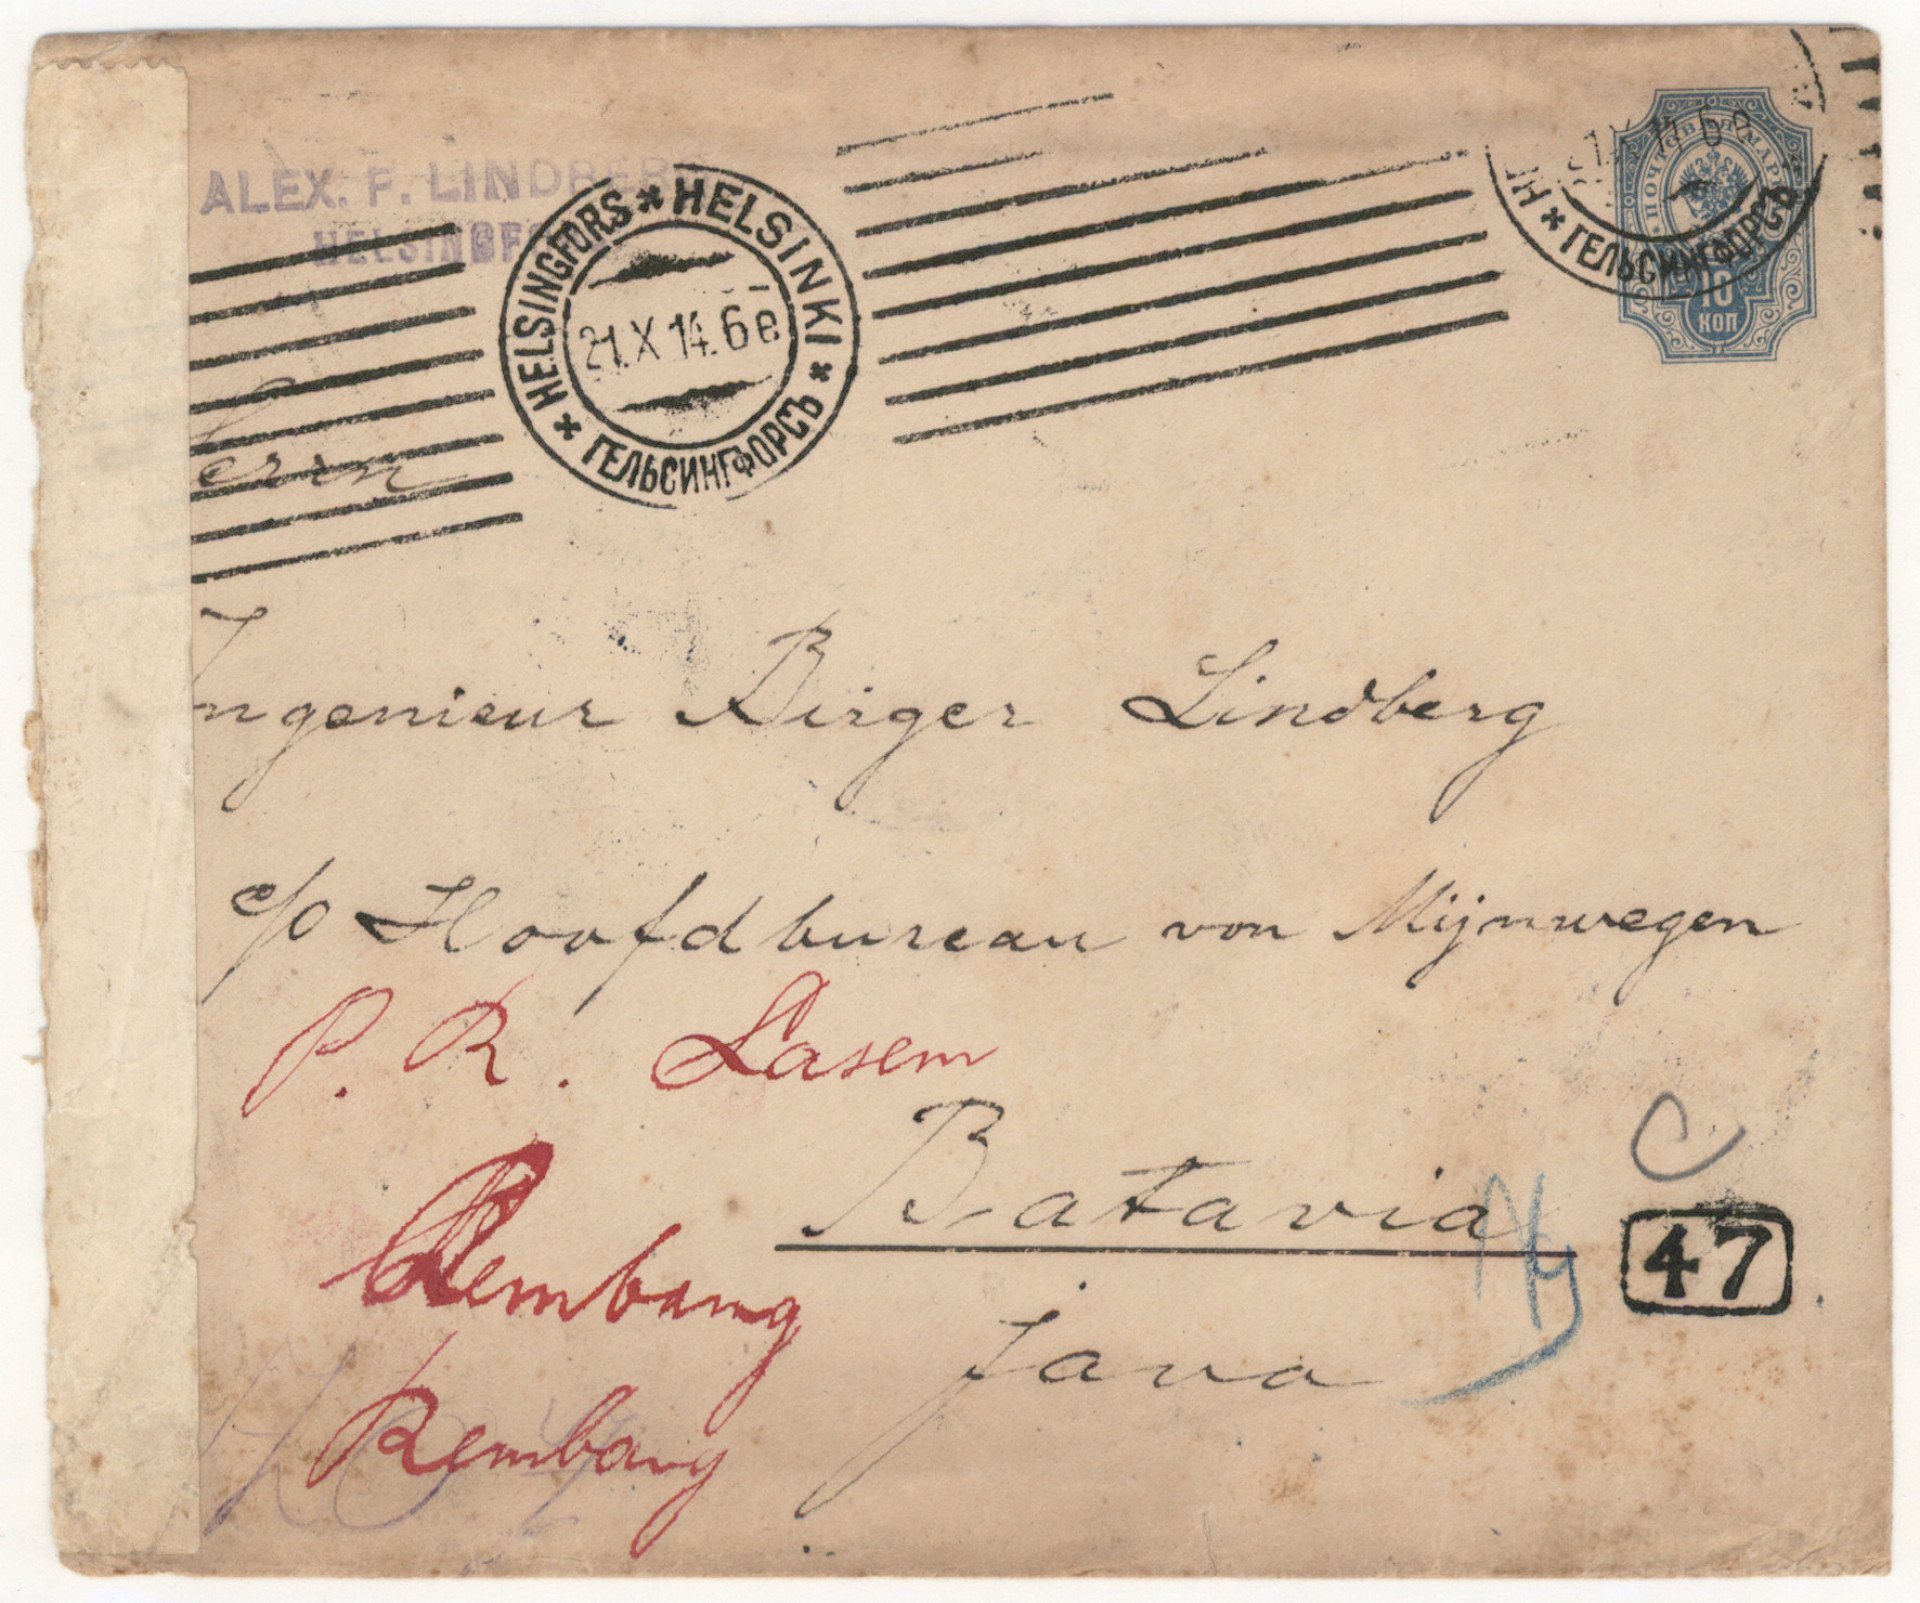 ALEX. F. LINDBER
HELSINGFO
HELSINGFORS * HELSINKI * ГЕЛЬСИНГФОРСЪ *
21.X 14. 6 e
* ГЕЛЬСИНГФОРСЪ
14 6 e
ПОЧТОВ МАРК
10
КОП
errn
Ingenieur Birger Lindberg
c/o Hoofdbureau von Mijnwegen
P. R. Lasem
Batavia
Java
Rembang
Rembang
C
47